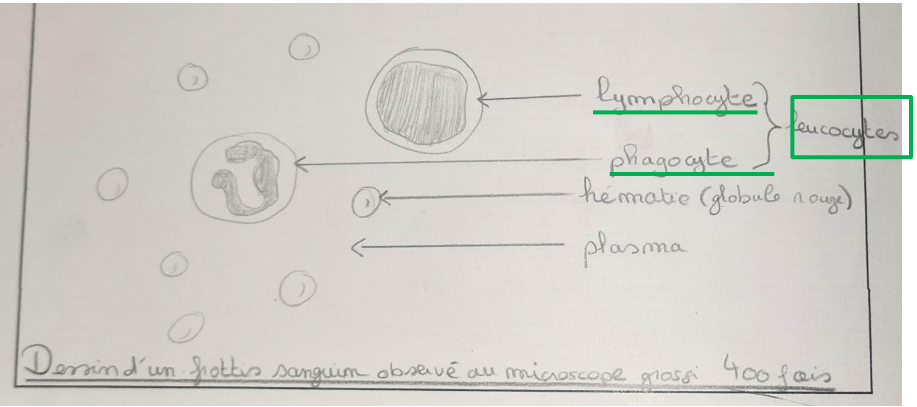 lymphocyte
leucocytes
phagocyte
hématie (globule rouge)
plasma
Dessin d'un frottis sanguin observé au microscope grossi 400 fois